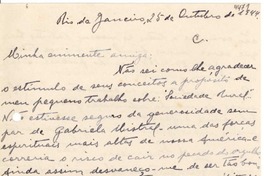 4471
Rio de Janeiro, 25 de Outubro de 1944
Minha eminente amiga:
Não sei como lhe agradecer
o estimulo de seus conceitos a proposito de
meu pequeno trabalho sobre: Sociedade Rural.
Não estivesse seguro da generosidade sem
par de Gabriela Mistral uma das forças
espirituais mais altas de nossa América e
correria o risco de cair no pecado do orgulho
ainda assim desvaneço-me de ser tão bom